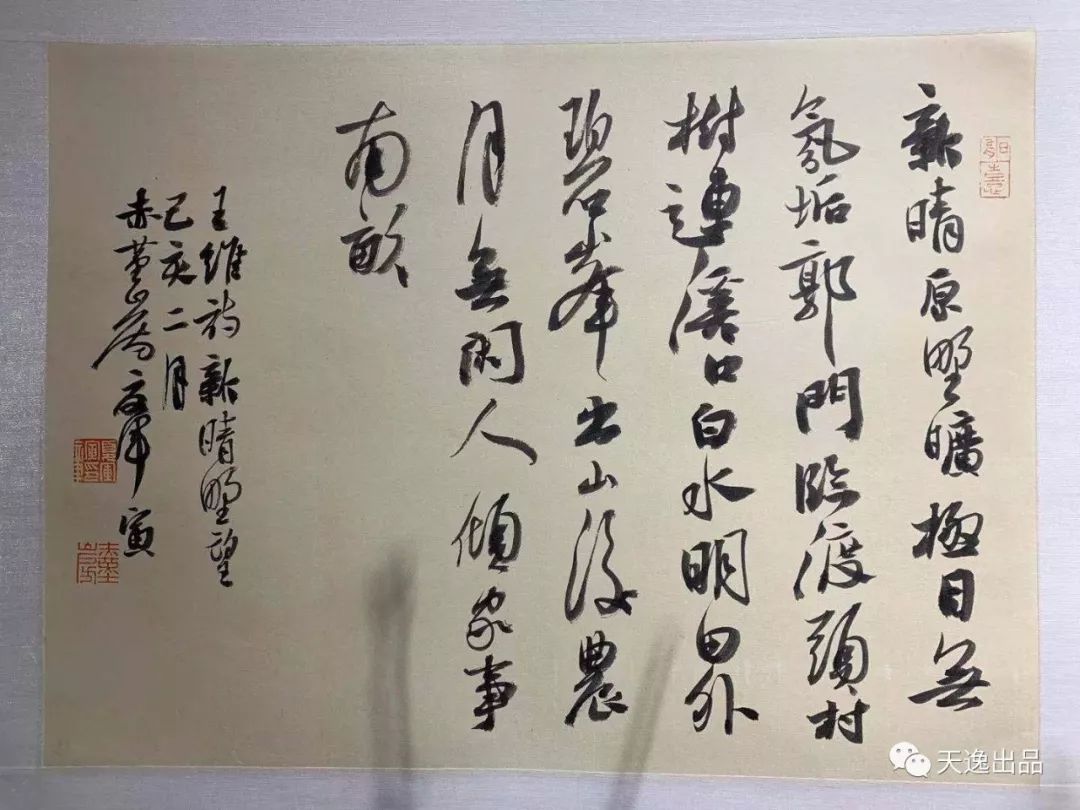 新晴原野曠極目無
氛垢郭門臨渡頭村
樹連溪口白水明田外
碧峰出山後農
月無閑人傾家事
南畝
王維詩新晴野望
己亥二月
赤堇山房
軍寅
天逸出品